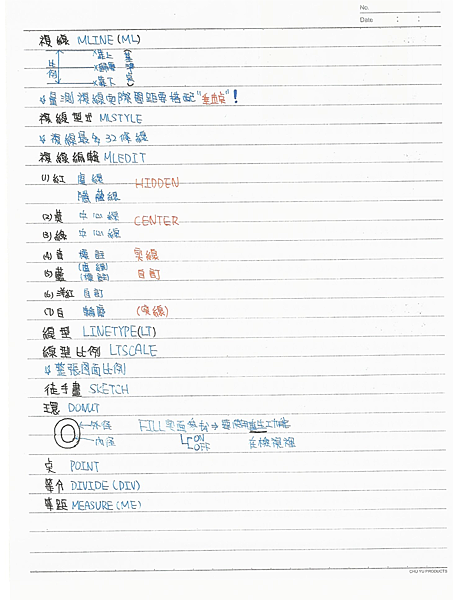 No.
Date : :
複線 MLINE(ML)
比例
靠上
歸零
靠下
↳量測複線實際間距要搭配"垂直"!
複線型式 MLSTYLE
↳複線最多32條線
複線編輯 MLEDIT
(1)紅 虛線 HIDDEN
隱藏線
(2)黃 中心線 CENTER
(3)綠 中心線
(4)青 標註 實線
(5)藍 (虛線)(標註) 自訂
(6)洋紅 自訂
(7)白 輪廓 (實線)
線型 LINETYPE(LT)
線型比例 LTSCALE
↳整張圖面比例
徒手畫 SKETCH
環 DONUT
外徑 FILL
內徑 ON
OFF 在檢視裡
點 POINT
等分 DIVIDE(DIV)
等距 MEASURE(ME)
CHU YU PRODUCTS